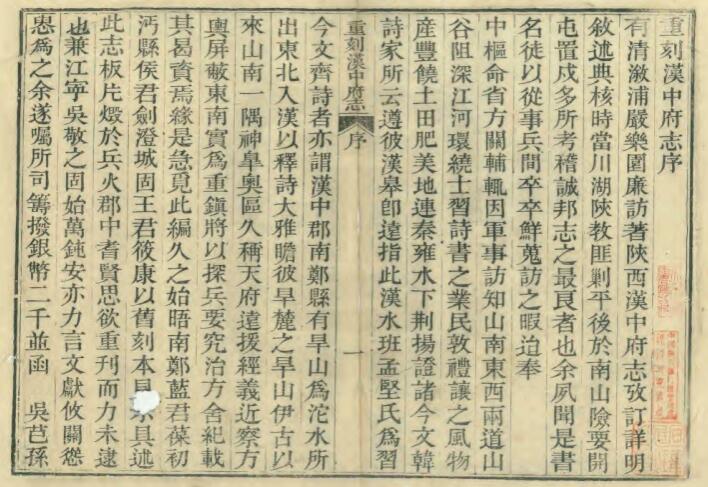 重刻漢中府志序
有清漵浦嚴樂園廉訪著陝西漢中府志攷訂詳明
敘述典核時當川湖陝教匪剿平後於南山險要開
屯置戍多所考稽誠邦志之最良者也余夙聞是書
名徒以從事兵間卒卒鮮蒐訪之暇迫奉
中樞命省方關輔輒因軍事訪知山南東西兩道山
谷阻深江河環繞士習詩書之業民敦禮讓之風物
產豐饒土田肥美地連秦雍水下荆揚證諸今文韓
詩家所云遵彼漢皋卽遠指此漢水班孟堅氏爲習
重刻漢中府志
序
一
今文齊詩者亦謂漢中郡南鄭縣有旱山爲沱水所
出東北入漢以釋詩大雅瞻彼旱麓之旱山伊古以
來山南一隅神皐奧區久稱天府遠援經義近察方
輿屏蔽東南實爲重鎮將以探兵要究治方舍紀載
其曷資焉緣是急覓此編久之始晤南鄭藍君葆初
沔縣侯君劍澄城固王君筱康以舊刻本見具述
此志板片燬於兵火郡中耆賢思欲重刊而力未逮
也兼江寧吳敬之固始萬鈍安亦力言文獻攸關慫
恿爲之余遂囑所司籌撥銀幣二千並函　吳芭孫